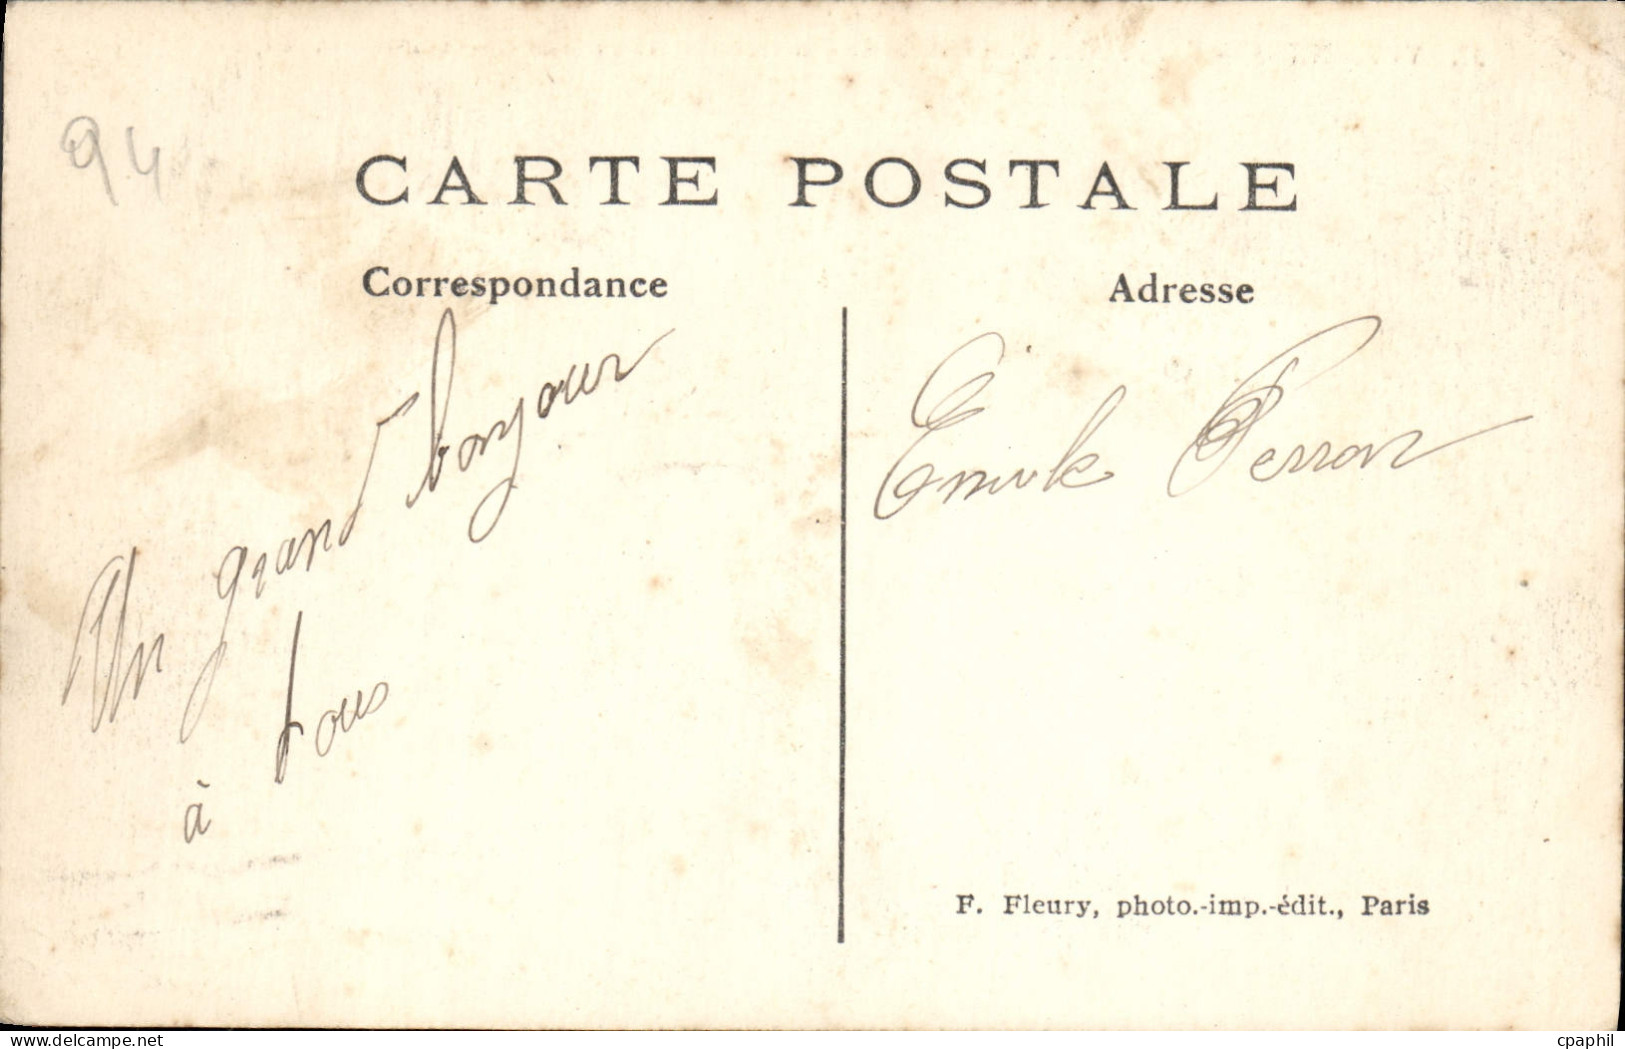 94
CARTE POSTALE
Correspondance
Un grand bonjour
à tous
Adresse
Emile Perron
F. Fleury, photo.-imp.-édit., Paris
delcampe.net
cpaphil